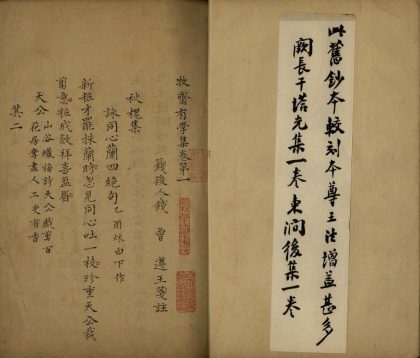 此舊鈔本較刻本尊王注增益甚多
闕長干塔光集一卷東澗後集一卷
牧齋有學集卷第一
籛後人錢 曾 遵王箋註
秋槐集
詠同心蘭四絕句 乙酉秋白下作
新粧才罷採蘭時忽見同心吐一枝珍重天公裁
剪意粧成斂拜喜盈眉
天公 山谷蠟梅詩天公戲剪百
花房奪盡人工更有香
其二